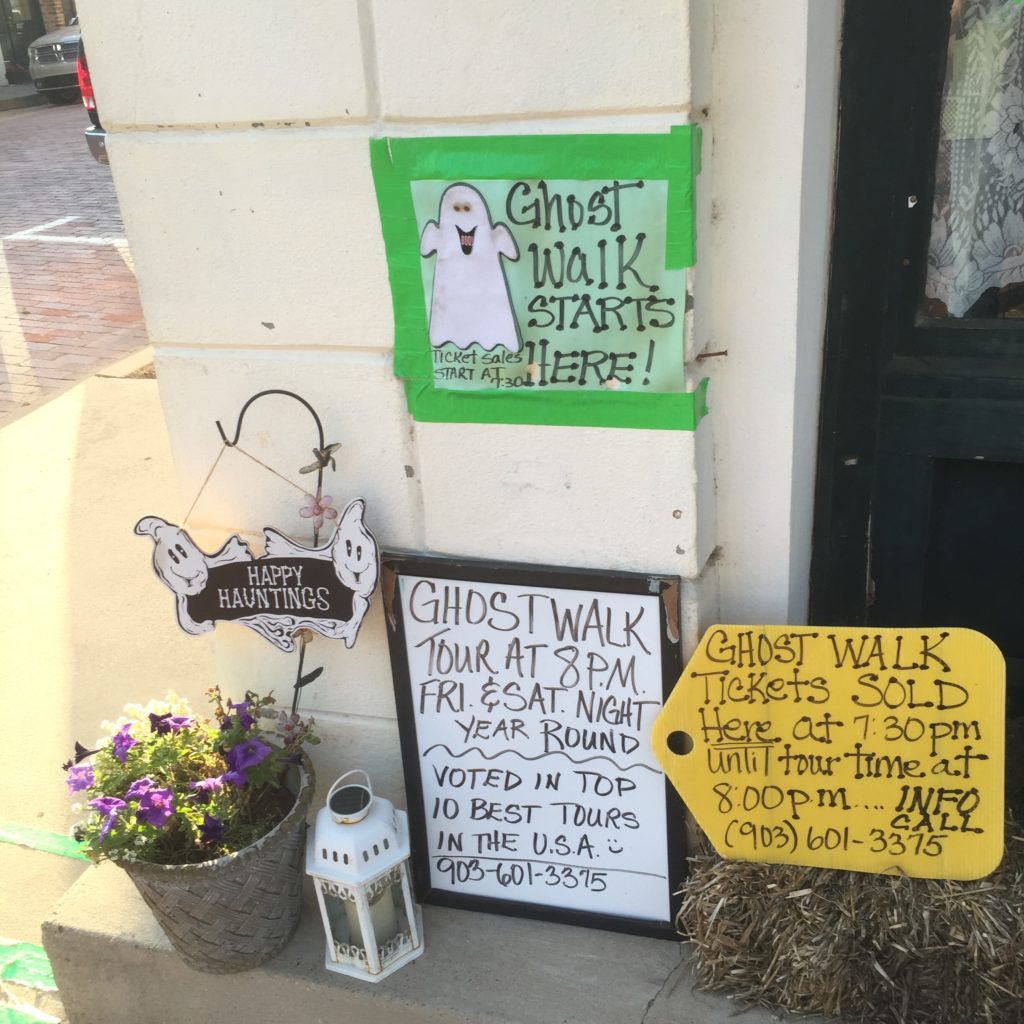 Ghost
Walk
STARTS
HERE!
Ticket Sales
START AT
7:30
BOO!
HAPPY
HAUNTINGS
GHOST WALK
TOUR AT 8 P.M.
FRI. & SAT. NIGHT
YEAR ROUND
VOTED IN TOP
10 BEST TOURS
IN THE U.S.A.
903-601-3375
GHOST WALK
TICKETS SOLD
Here at 7:30 pm
until tour time at
8:00 p.m.... INFO
CALL
(903) 601-3375